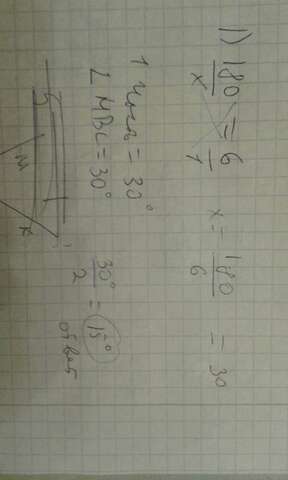 1) 180/x = 6/1 x = 180/6 = 30
1 часть = 30°
∠ MBC = 30° 30°/2 = 15°
ответ
M
K